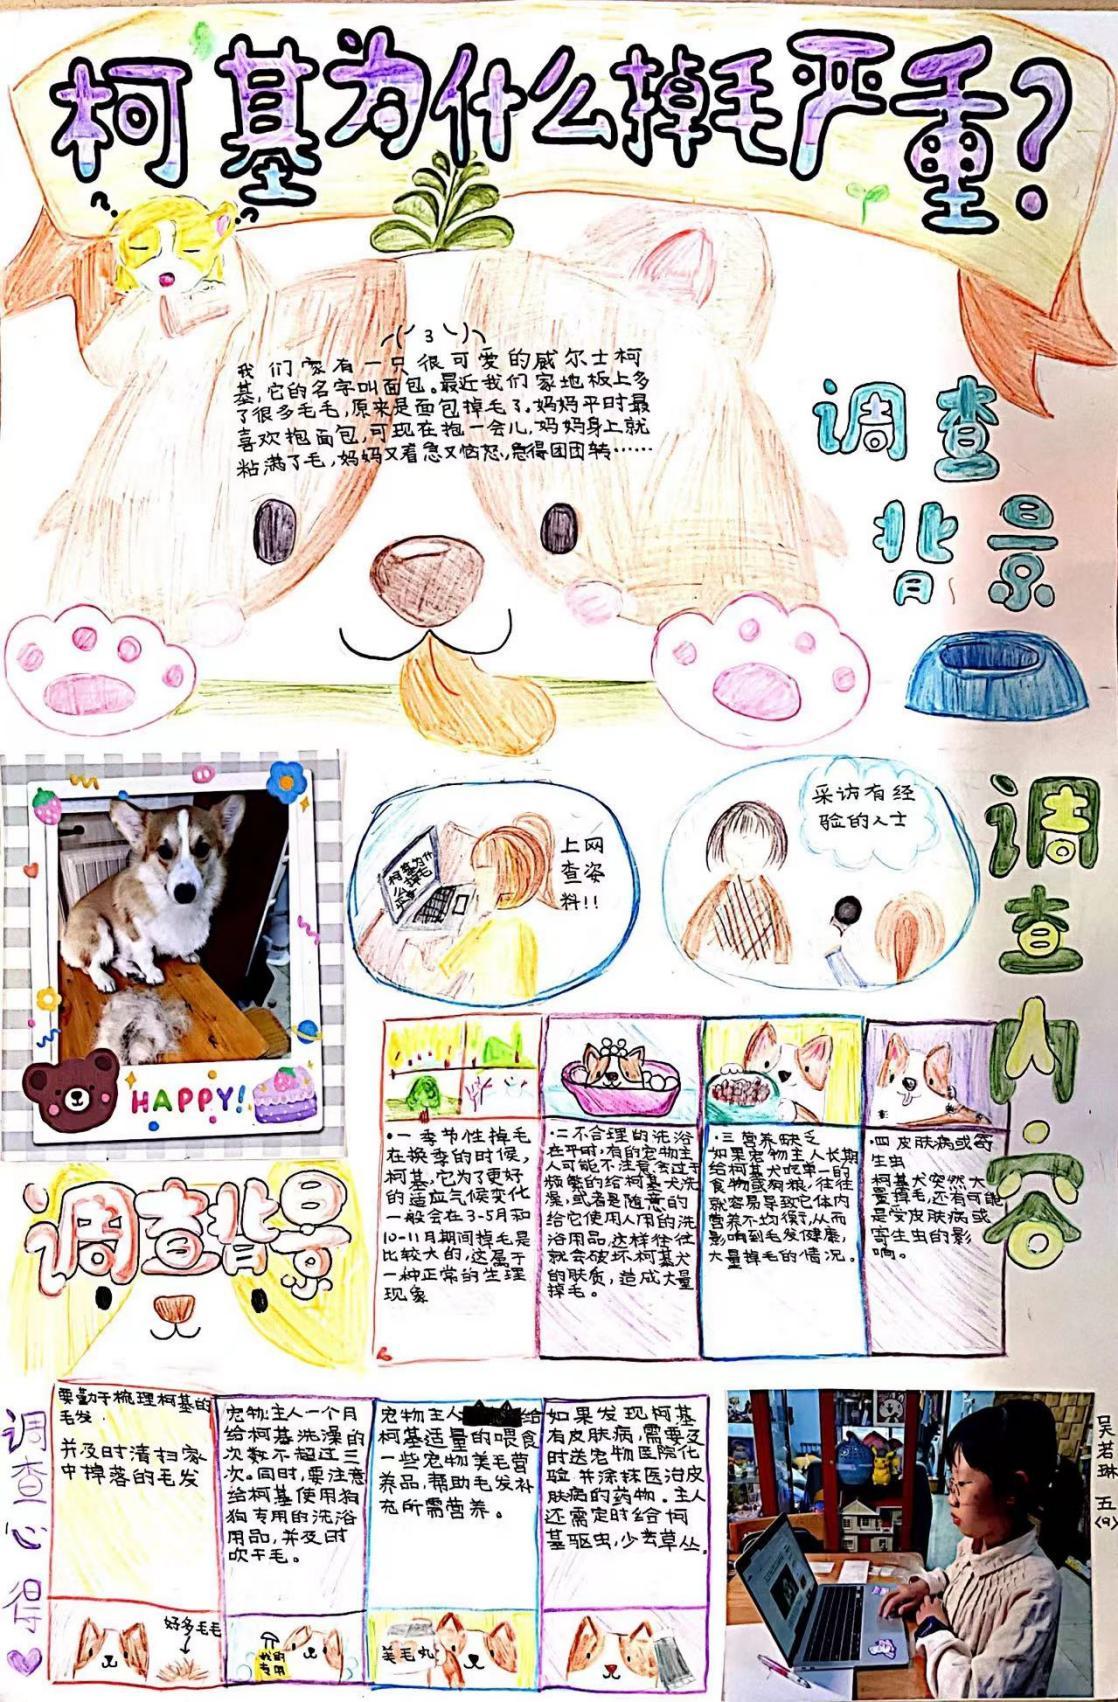 柯基为什么掉毛严重?
我们家有一只很可爱的威尔士柯
基,它的名字叫面包。最近我们家地板上多
了很多毛毛,原来是面包掉毛了。妈妈平时最
喜欢抱面包,可现在抱一会儿,妈妈身上就
粘满了毛,妈妈又着急又恼怒,急得团团转……
调查
背景
HAPPY!
柯基为什
么掉毛
严重
上网
查资
料!!
采访有经
验的人士
调查内容
调查背景
·一 季节性掉毛
在换季的时候,
柯基,它为了更好
的适应气候变化
一般会在3-5月和
10-11月期间掉毛是
比较大的,这属于
一种正常的生理
现象
·二不合理的洗浴
在平时,有的宠物主
人可能不注意,会过于
频繁的给柯基犬洗
澡,或者是随意的
给它使用人用的洗
浴用品,这样往往
就会破坏柯基犬
的肤质,造成大量
掉毛。
·三 营养缺乏
如果宠物主人长期
给柯基犬吃单一的
食物或狗粮,往往
就容易导致它体内
营养不均衡,从而
影响到毛发健康,
大量掉毛的情况。
·四 皮肤病或寄
生虫
柯基犬突然大
量掉毛,还有可能
是受皮肤病或
寄生虫的影
响。
调查心得
要勤于梳理柯基的
毛发.
并及时清扫家
中掉落的毛发
好多毛毛
宠物主人一个月
给柯基洗澡的
次数不超过三
次。同时,要注意
给柯基使用狗
狗专用的洗浴
用品,并及时
吹干毛。
我的
专用
宠物主人给
柯基适量的喂食
一些宠物美毛营
养品,帮助毛发补
充所需营养。
美毛丸
如果发现柯基
有皮肤病,需要及
时送宠物医院化
验并涂抹医治皮
肤病的药物。主人
还需定时给柯
基驱虫,少去草丛.
吴若琳 五(9)